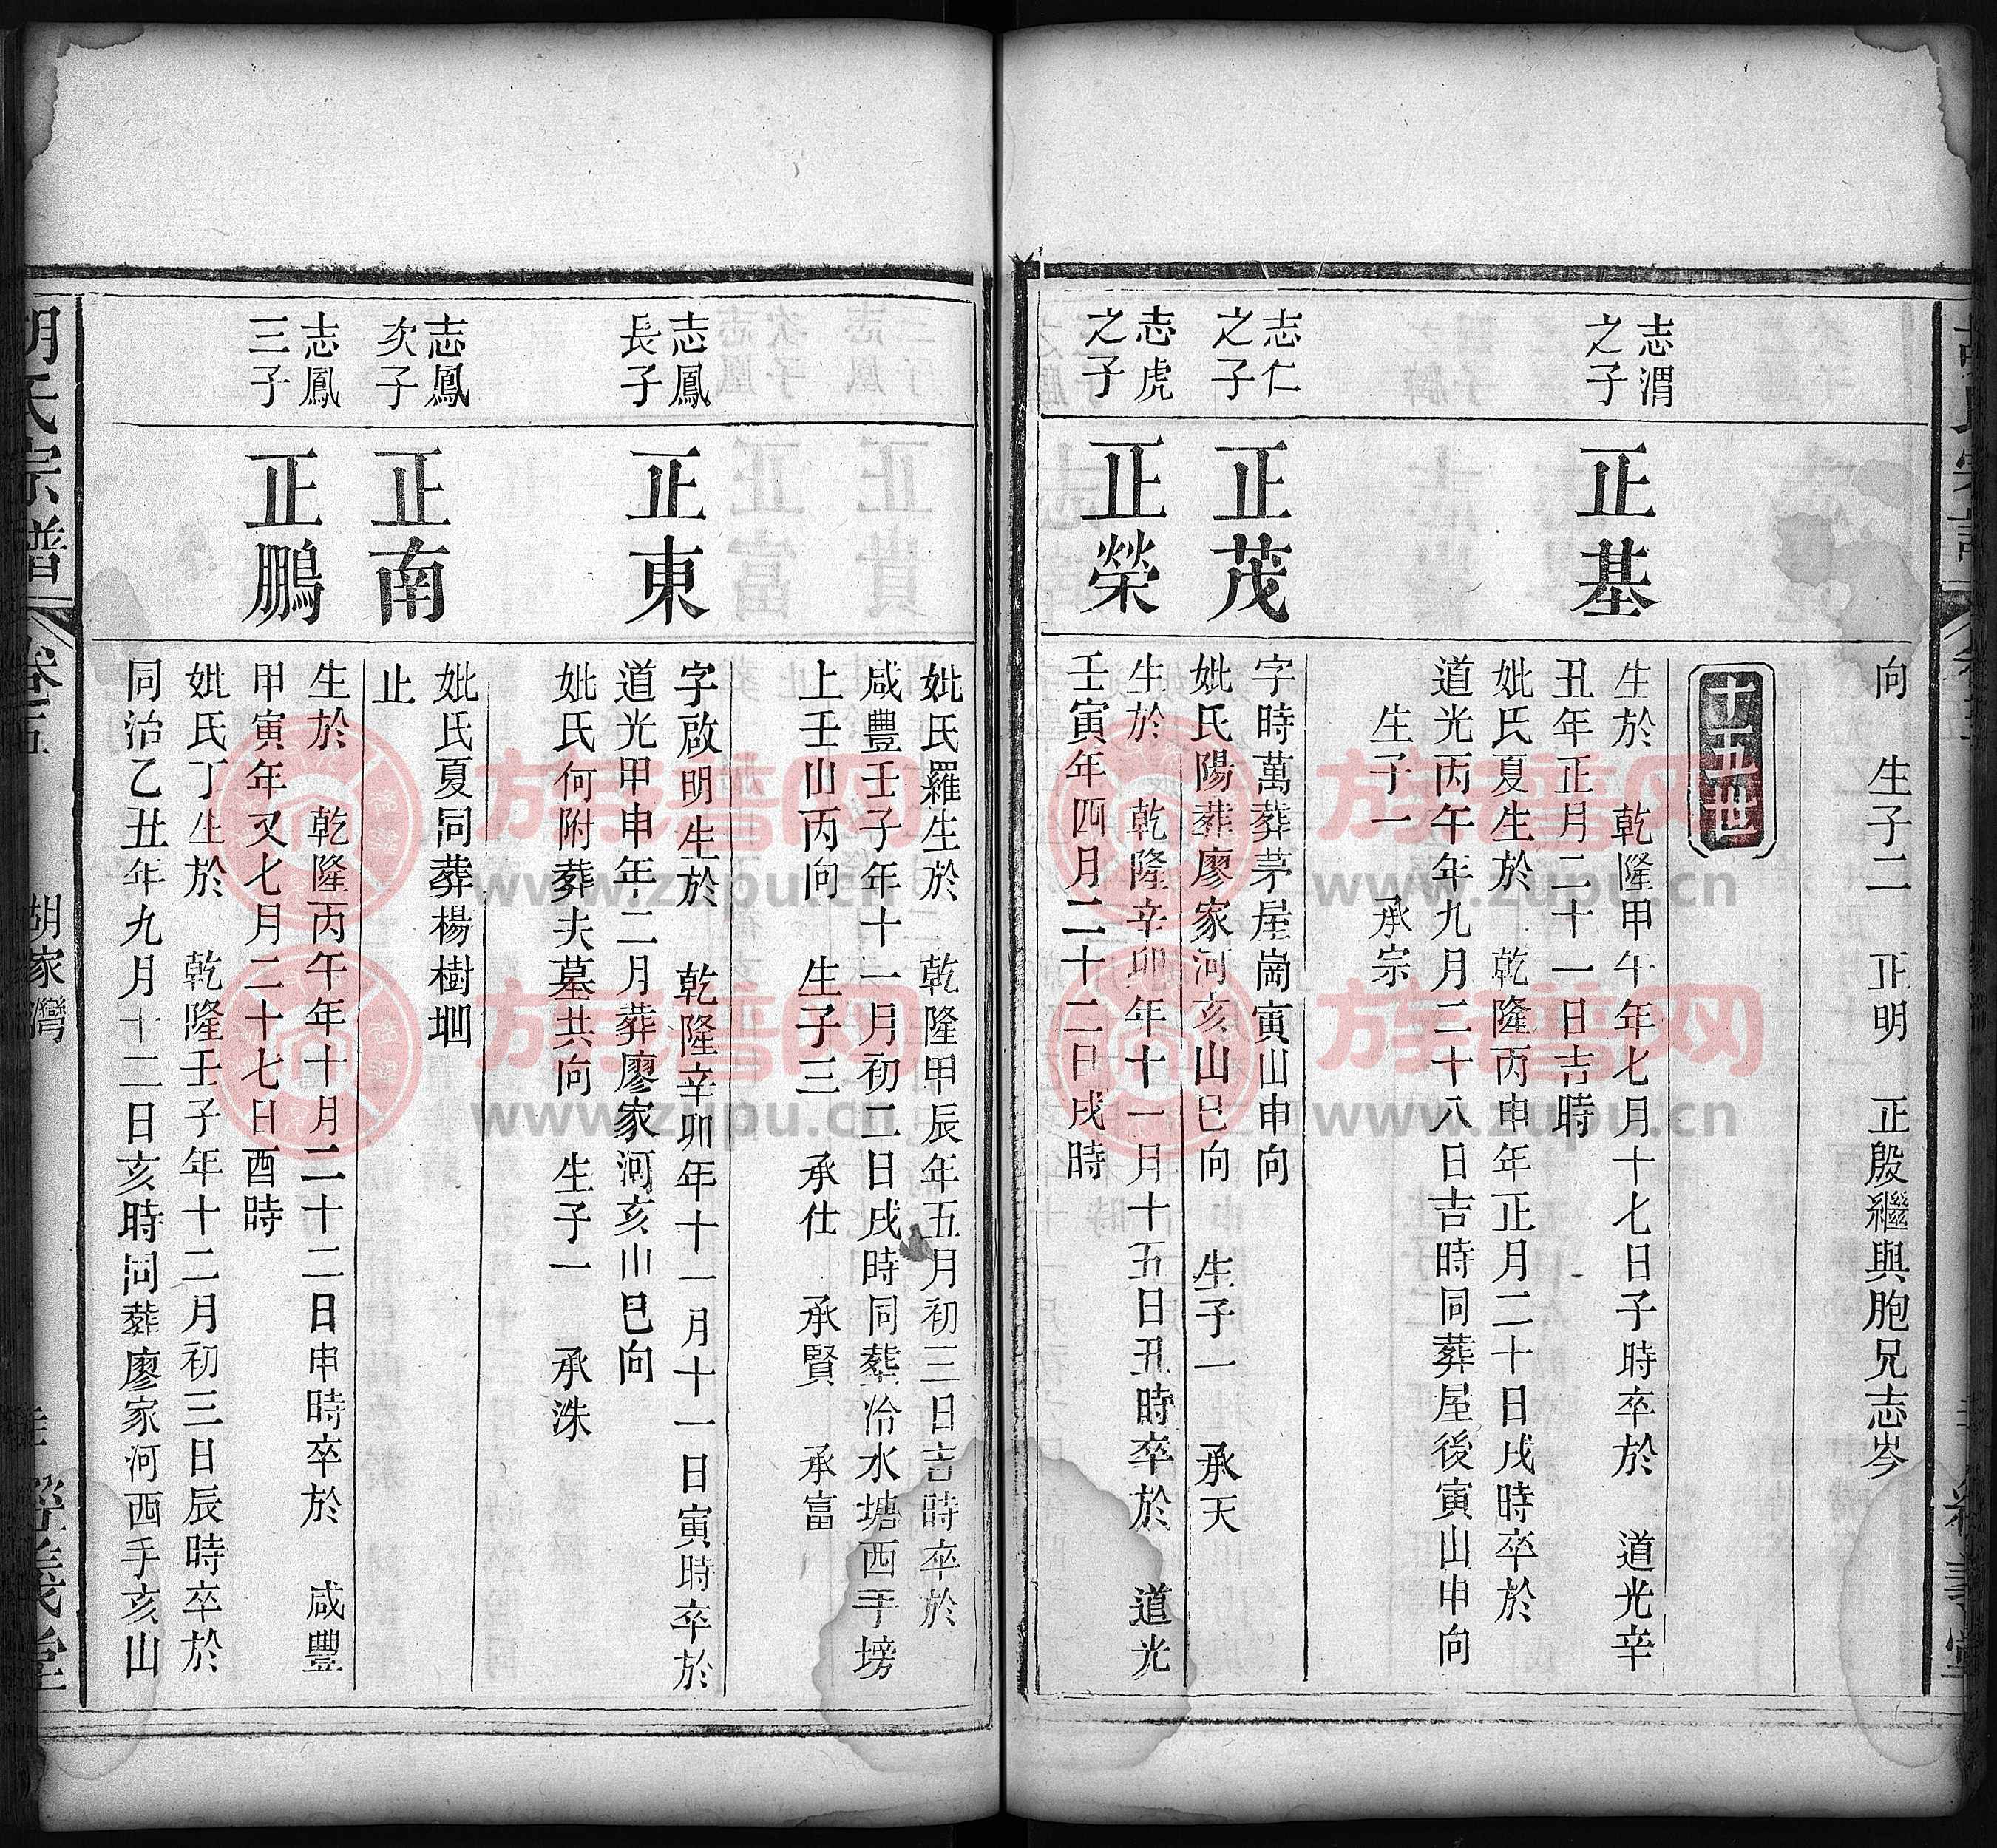 向　生子二　正明　正殷繼與胞兄志岑
十五世
志渭
之子
正基
生於　乾隆甲午年七月十七日子時卒於　道光辛
丑年正月二十一日吉時
妣氏夏生於　乾隆丙申年正月二十日戌時卒於
道光丙午年九月二十八日吉時同葬屋後寅山申向
生子一　承宗
志仁
之子
正茂
字時萬葬茅屋崗寅山申向
妣氏陽葬廖家河亥山巳向　生子一　承天
志虎
之子
正榮
生於　乾隆辛卯年十一月十五日丑時卒於　道光
壬寅年四月二十二日戌時
妣氏羅生於　乾隆甲辰年五月初三日吉時卒於
咸豐壬子年十一月初二日戌時同葬冷水塘西手塝
上壬山丙向　生子三　承仕　承賢　承富
志鳳
長子
正東
字啟明生於　乾隆辛卯年十一月十一日寅時卒於
道光甲申年二月葬廖家河亥山巳向
妣氏何附葬夫墓共向　生子一　承洙
志鳳
次子
正南
妣氏夏同葬楊樹堌
止
志鳳
三子
正鵬
生於　乾隆丙午年十月二十二日申時卒於　咸豐
甲寅年又七月二十七日酉時
妣氏丁生於　乾隆壬子年十二月初三日辰時卒於
同治乙丑年九月十二日亥時同葬廖家河西手亥山
胡氏宗譜
卷五
胡家灣
族谱网
www.zupu.cn
族谱网
www.zupu.cn
族谱网
www.zupu.cn
族谱网
www.zupu.cn